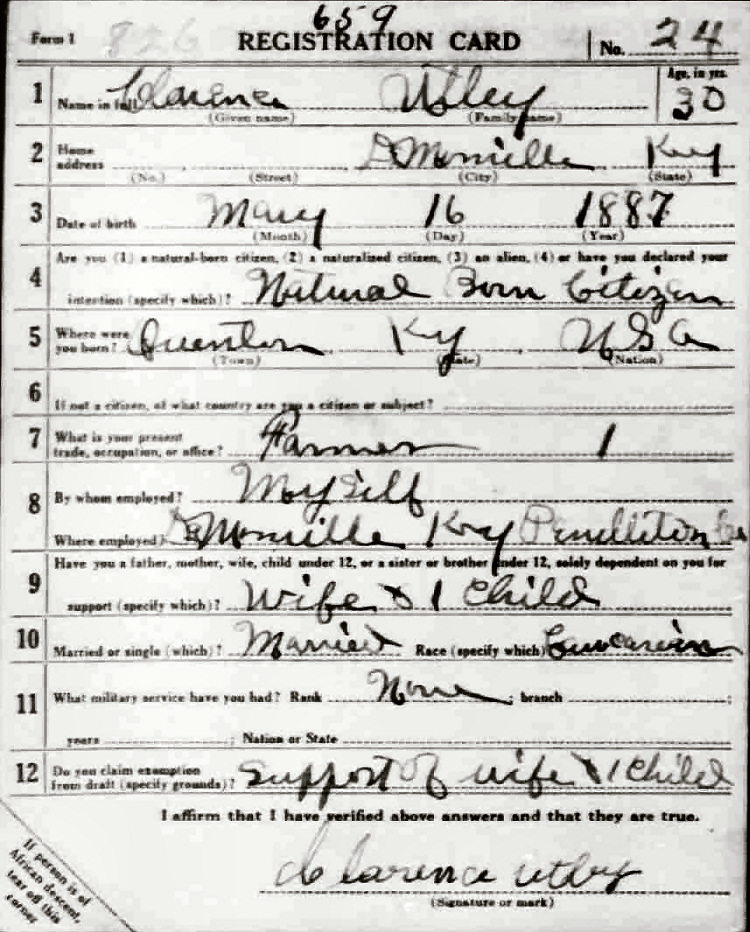 659
Form 1 826 REGISTRATION CARD No. 24
1 Name in full Clarence Utley Age, in yrs. 30
(Given name) (Family name)
2 Home address DeMossville Ky
(No.) (Street) (City) (State)
3 Date of birth May 16 1887
(Month) (Day) (Year)
Are you (1) a natural-born citizen, (2) a naturalized citizen, (3) an alien, (4) or have you declared your
4 intention (specify which)? Natural Born Citizen
5 Where were you born? Ky USA
(Town) (State) (Nation)
6 If not a citizen, of what country are you a citizen or subject?
7 What is your present trade, occupation, or office? Farmer 1
8 By whom employed? My Self
Where employed? DeMossville Ky Pendleton Co
9 Have you a father, mother, wife, child under 12, or a sister or brother under 12, solely dependent on you for
support (specify which)? Wife & 1 Child
10 Married or single (which)? Married Race (specify which)? Caucasian
11 What military service have you had? Rank None ; branch ;
years ; Nation or State
12 Do you claim exemption from draft (specify grounds)? Support of wife & 1 Child
I affirm that I have verified above answers and that they are true.
Clarence Utley
(Signature or mark)
If person is of
African descent,
tear off this
corner